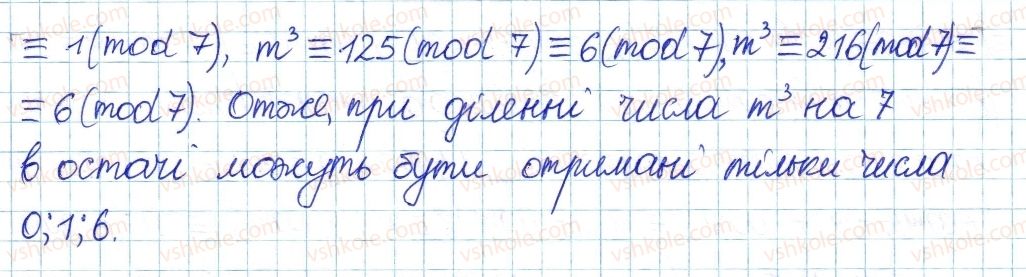 ≡ 1 (mod 7), m³ ≡ 125 (mod 7) ≡ 6 (mod 7), m³ ≡ 216 (mod 7) ≡
≡ 6 (mod 7). Отже, при діленні числа m³ на 7
в остачі можуть бути отримані тільки числа
0; 1; 6.